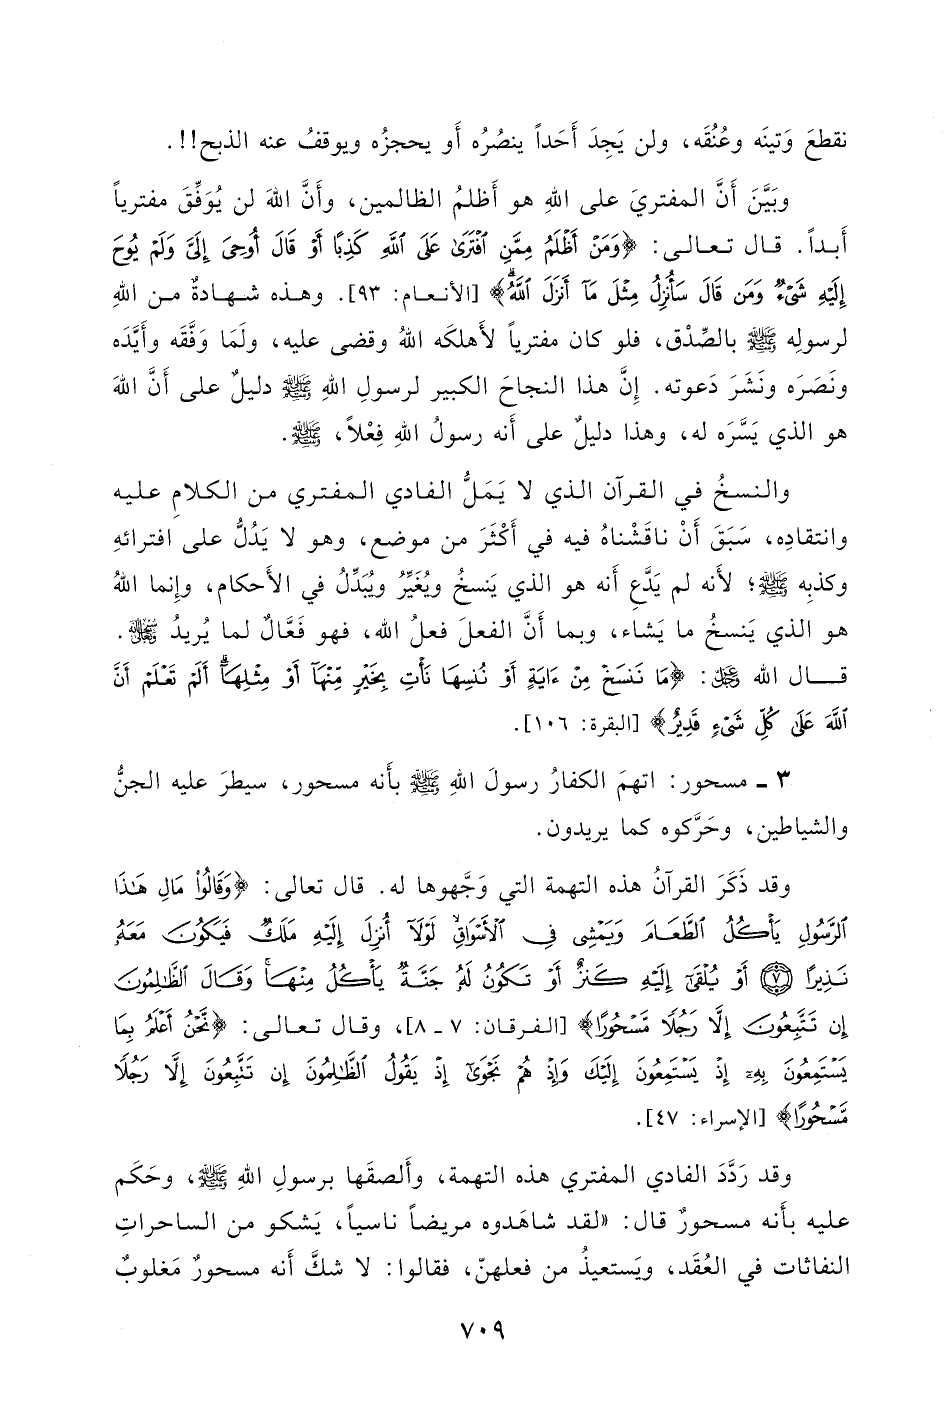 نقطعَ وَتينَه وعُنُقَه، ولن يَجِدَ أَحَداً ينصُرُه أَو يحجزُه ويوقفُ عنه الذبح!!.
وبَيَّنَ أَنَّ المفتريَ على اللهِ هو أَظلمُ الظالمين، وأَنَّ اللهَ لن يُوَفِّقَ مفترياً
أَبداً. قال تعالى: ﴿وَمَنْ أَظْلَمُ مِمَّنِ ٱفْتَرَىٰ عَلَى ٱللَّهِ كَذِبًا أَوْ قَالَ أُوحِىَ إِلَىَّ وَلَمْ يُوحَ
إِلَيْهِ شَىْءٌ وَمَن قَالَ سَأُنزِلُ مِثْلَ مَآ أَنزَلَ ٱللَّهُ﴾ [الأنعام: ٩٣]. وهذه شهادةٌ من اللهِ
لرسولِه ﷺ بالصِّدْق، فلو كان مفترياً لأَهلكَه اللهُ وقضى عليه، ولَمَا وَفَّقَه وأَيَّدَه
ونَصَرَه ونَشَرَ دَعوته. إِنَّ هذا النجاحَ الكبير لرسولِ اللهِ ﷺ دليلٌ على أَنَّ اللهَ
هو الذي يَسَّرَه له، وهذا دليلٌ على أنه رسولُ اللهِ فِعْلاً، ﷺ.
والنسخُ في القرآن الذي لا يَمَلُّ الفادي المفتري من الكلامِ عليه
وانتقادِه، سَبَقَ أَنْ ناقَشْناهُ فيه في أَكْثَرَ من موضع، وهو لا يَدُلُّ على افترائهِ
وكذبِه ﷺ؛ لأنه لم يَدَّعِ أَنه هو الذي يَنسخُ ويُغَيِّرُ ويُبَدِّلُ في الأحكام، وإِنما اللهُ
هو الذي يَنسخُ ما يَشاء، وبما أَنَّ الفعلَ فعلُ الله، فهو فَعَّالٌ لما يُريدُ ﷻ.
قال الله ﷿: ﴿مَا نَنسَخْ مِنْ ءَايَةٍ أَوْ نُنسِهَا نَأْتِ بِخَيْرٍ مِّنْهَآ أَوْ مِثْلِهَآ أَلَمْ تَعْلَمْ أَنَّ
ٱللَّهَ عَلَىٰ كُلِّ شَىْءٍ قَدِيرٌ﴾ [البقرة: ١٠٦].
٣ ـ مسحور: اتهمَ الكفارُ رسولَ اللهِ ﷺ بأَنه مسحور، سيطرَ عليه الجنُّ
والشياطين، وحَرَّكوه كما يريدون.
وقد ذَكَرَ القرآنُ هذه التهمة التي وَجَّهوها له. قال تعالى: ﴿وَقَالُوا۟ مَالِ هَٰذَا
ٱلرَّسُولِ يَأْكُلُ ٱلطَّعَامَ وَيَمْشِى فِى ٱلْأَسْوَاقِ لَوْلَآ أُنزِلَ إِلَيْهِ مَلَكٌ فَيَكُونَ مَعَهُۥ
نَذِيرًا ۝٧ أَوْ يُلْقَىٰٓ إِلَيْهِ كَنزٌ أَوْ تَكُونُ لَهُۥ جَنَّةٌ يَأْكُلُ مِنْهَا وَقَالَ ٱلظَّٰلِمُونَ
إِن تَتَّبِعُونَ إِلَّا رَجُلًا مَّسْحُورًا﴾ [الفرقان: ٧ ـ ٨]، وقال تعالى: ﴿نَّحْنُ أَعْلَمُ بِمَا
يَسْتَمِعُونَ بِهِۦٓ إِذْ يَسْتَمِعُونَ إِلَيْكَ وَإِذْ هُمْ نَجْوَىٰٓ إِذْ يَقُولُ ٱلظَّٰلِمُونَ إِن تَتَّبِعُونَ إِلَّا رَجُلًا
مَّسْحُورًا﴾ [الإسراء: ٤٧].
وقد رَدَّدَ الفادي المفتري هذه التهمة، وأَلصقَها برسولِ اللهِ ﷺ، وحَكَم
عليه بأنه مسحورٌ قال: «لقد شاهَدوه مريضاً ناسياً، يَشكو من الساحراتِ
النفاثات في العُقَد، ويَستعيذُ من فعلهنّ، فقالوا: لا شكَّ أَنه مسحورٌ مَغلوبٌ
٧٠٩